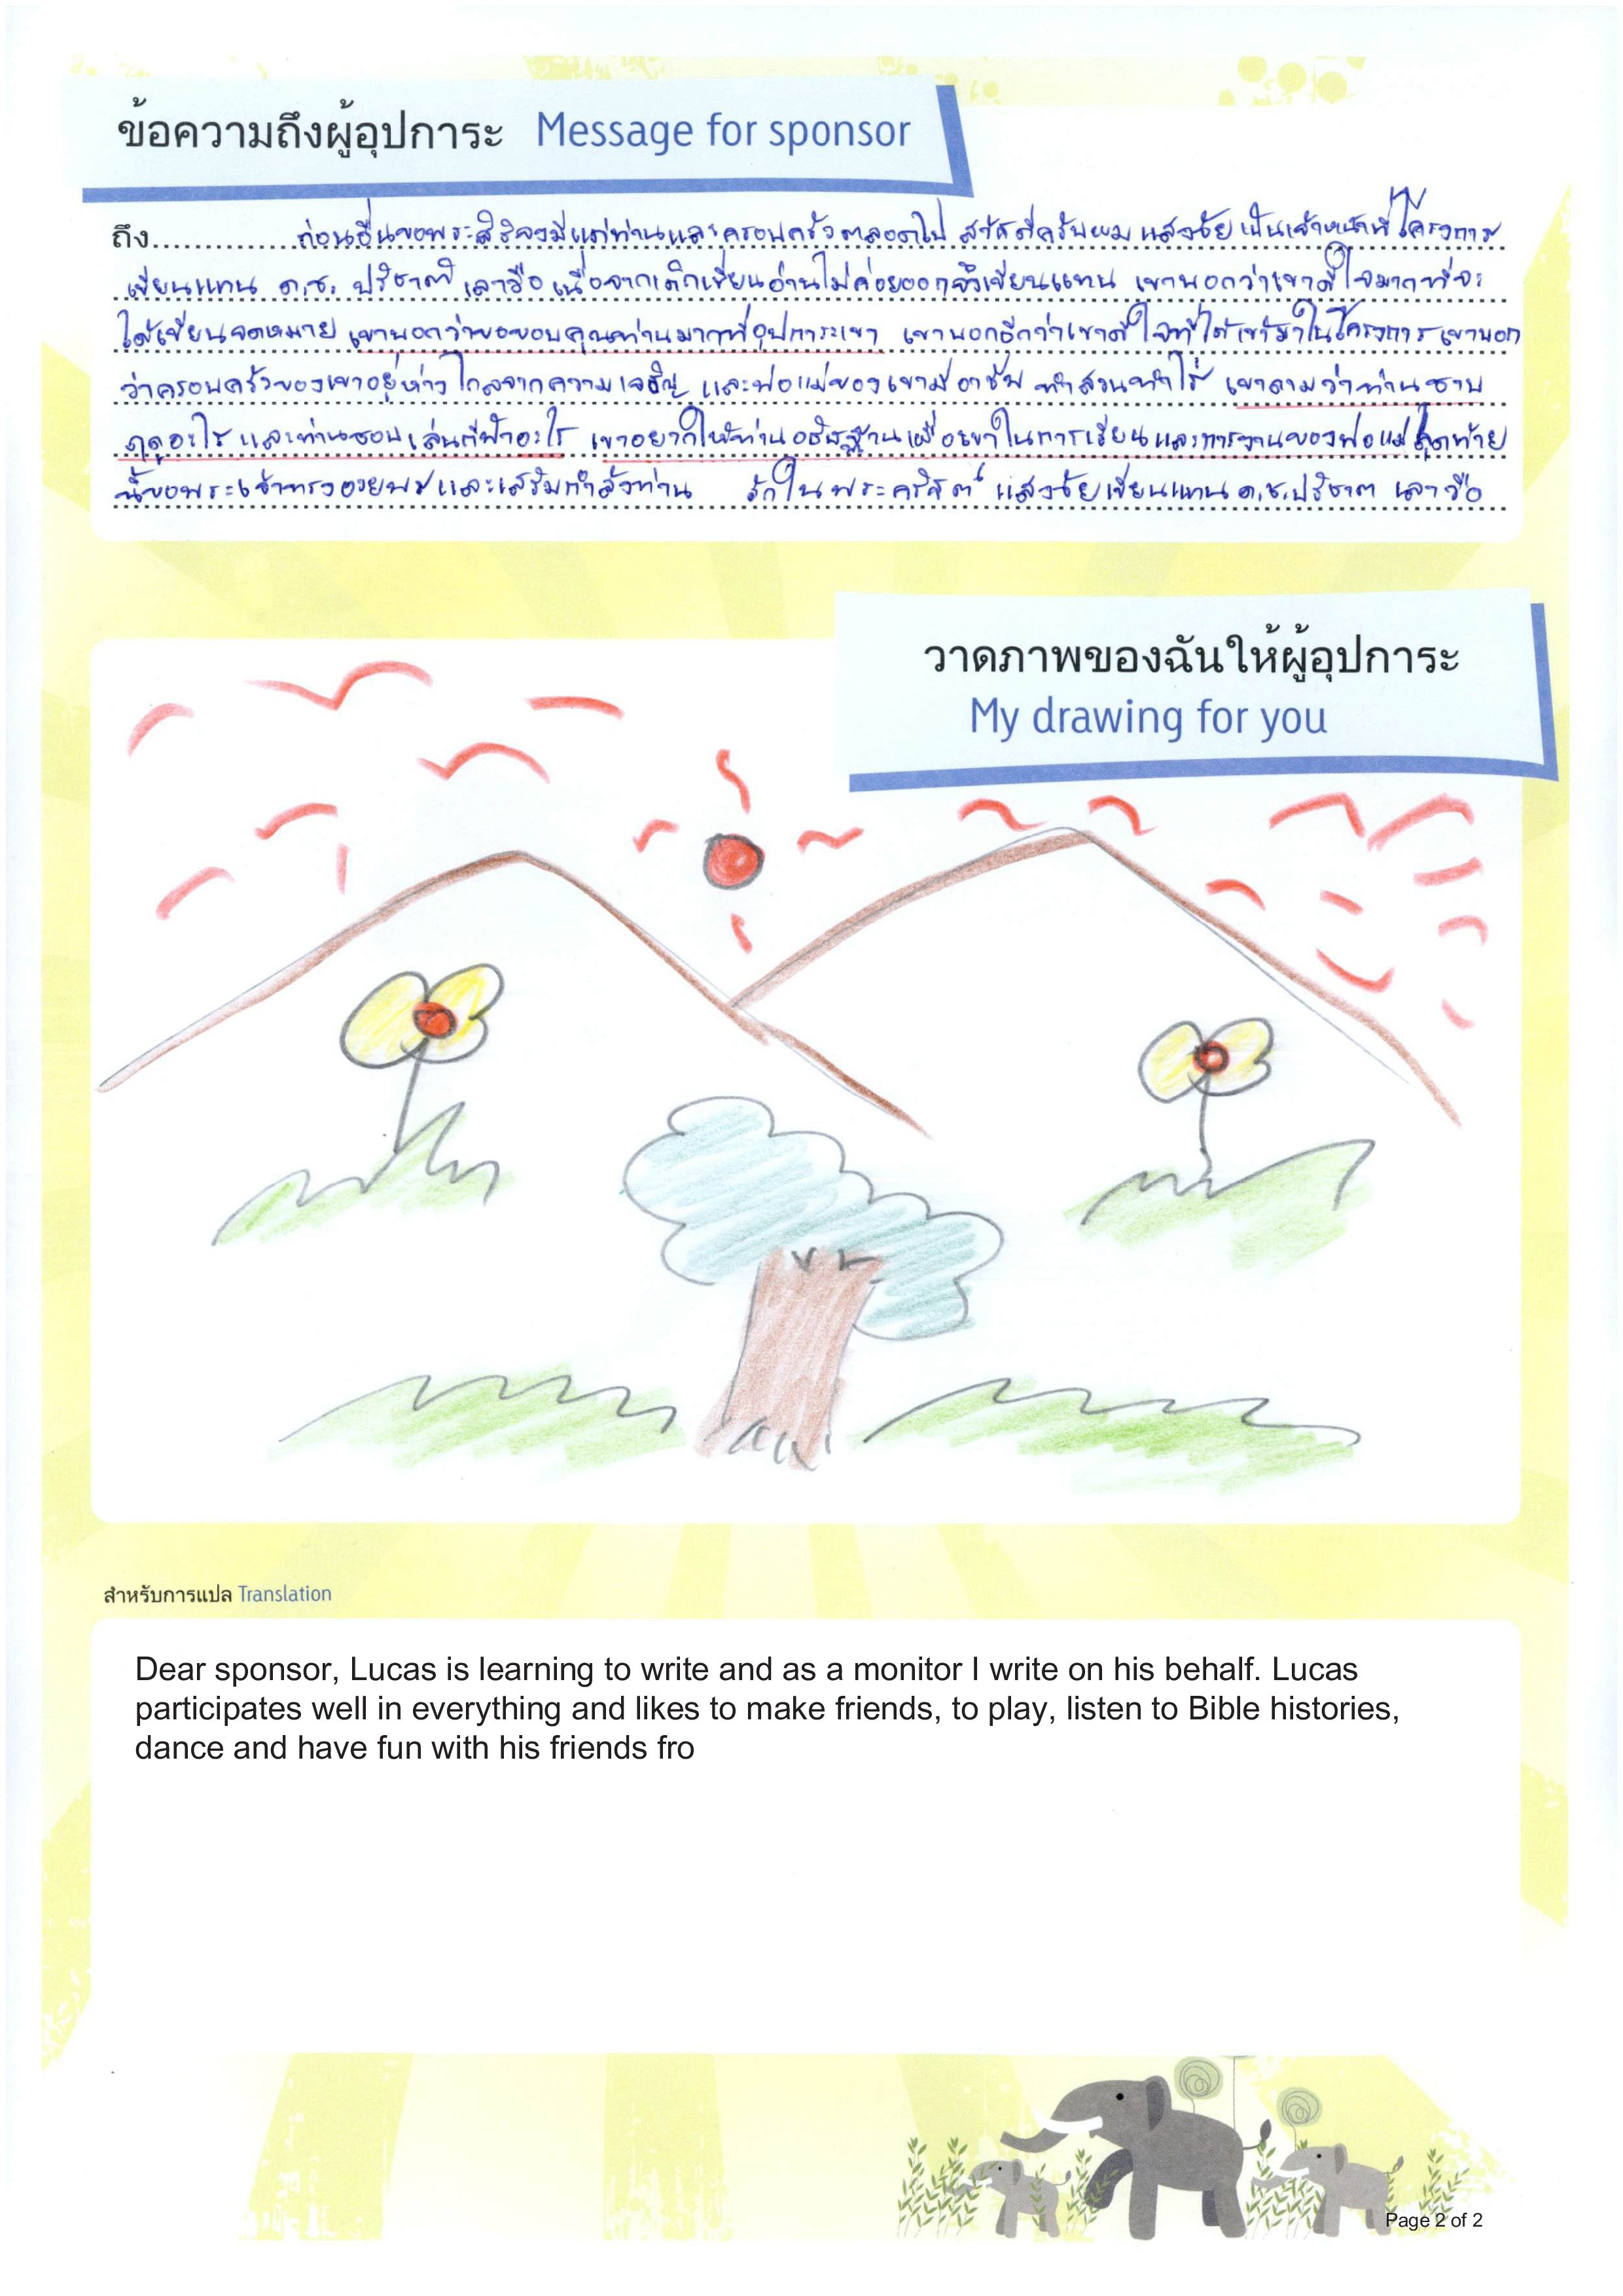 ข้อความถึงผู้อุปการะ Message for sponsor
ถึง............... ก่อนอื่นขอพระสิริจงมีแด่ท่านและครอบครัวตลอดไป สวัสดีครับผม แสงชัย เป็นเจ้าหน้าที่โครงการ
เขียนแทน ด.ช. ปริชาติ เลาวือ เนื่องจากเด็กเขียนอ่านไม่ค่อยออกจึงเขียนแทน เขาบอกว่าเขาดีใจมากที่จะ
ได้เขียนจดหมาย เขาบอกว่าขอขอบคุณท่านมากที่อุปการะเขา เขาบอกอีกว่าเขาดีใจที่ได้เข้ามาในโครงการ เขาบอก
ว่าครอบครัวของเขาอยู่ห่างไกลจากความเจริญ และพ่อแม่ของเขามีอาชีพ ทำสวนทำไร่ เขาถามว่าท่านชอบ
ฤดูอะไร และท่านชอบเล่นกีฬาอะไร เขาอยากให้ท่านอธิษฐานเผื่อเขาในการเรียนและการงานของพ่อแม่ สุดท้าย
นี้ขอพระเจ้าทรงอวยพรและเสริมกำลังท่าน รักในพระคริสต์ แสงชัยเขียนแทน ด.ช.ปริชาต เลาวือ
วาดภาพของฉันให้ผู้อุปการะ
My drawing for you
สำหรับการแปล Translation
Dear sponsor, Lucas is learning to write and as a monitor I write on his behalf. Lucas
participates well in everything and likes to make friends, to play, listen to Bible histories,
dance and have fun with his friends fro
Page 2 of 2